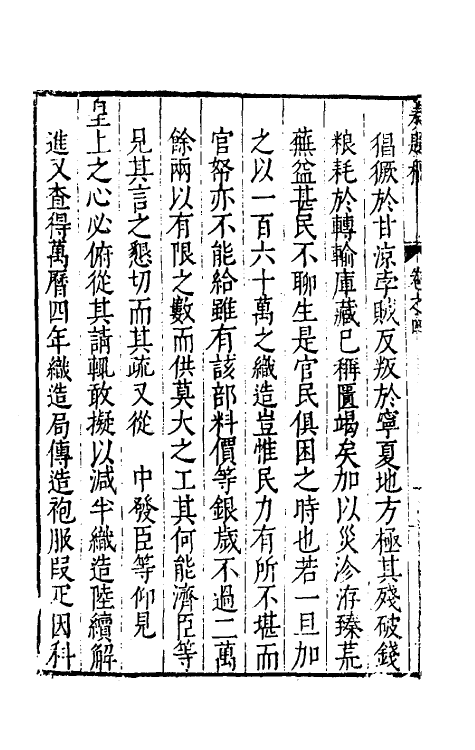 卷之四
猖獗於甘涼孛賊反叛於寧夏地方極其殘破錢
粮耗於轉輸庫藏已稱匱竭矣加以災沴洊臻荒
蕪益甚民不聊生是官民俱困之時也若一旦加
之以一百六十萬之織造豈惟民力有所不堪而
官帑亦不能給雖有該部料價等銀歲不過二萬
餘兩以有限之數而供莫大之工其何能濟臣等
見其言之懇切而其疏又從 中發臣等仰見
皇上之心必俯從其請輒敢擬以減半織造陸續解
進又查得萬曆四年織造局傳造袍服段疋因科